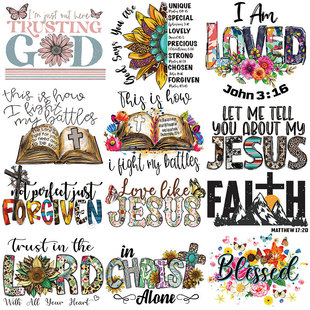 I'm just out here
TRUSTING
GOD
God Says You Are
UNIQUE
SPECIAL
LOVELY
PRECIOUS
STRONG
CHOSEN
FORGIVEN
I Am
LOVED
John 3:16
this is how
I fight my
battles
This is how
i fight my battles
LET ME TELL
YOU ABOUT MY
JESUS
not perfect just
FORGIVEN
Love like
JESUS
FAITH
MATTHEW 17:20
Trust in the
LORD
With All Your Heart
in
CHRIST
Alone
Blessed